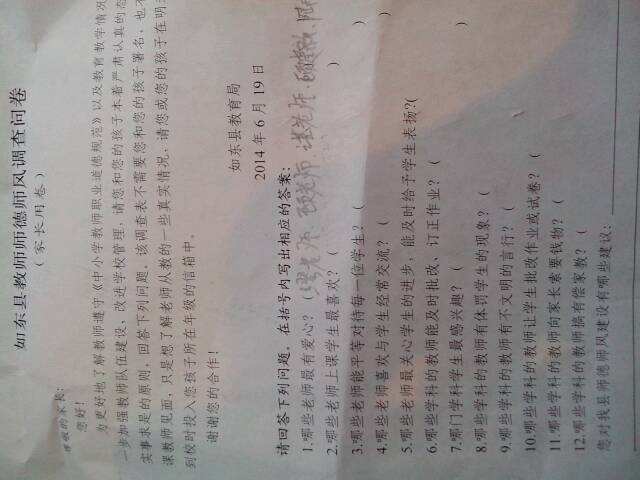 如东县教师师德师风调查问卷
（家长用卷）
尊敬的家长：
您好！
为更好地了解教师遵守《中小学教师职业道德规范》以及教育教学情况
一步加强教师队伍建设，改进学校管理，请您和您的孩子本着严肃认真的态
实事求是的原则，回答下列问题。该调查表不需要您和您的孩子署名，也不
课教师见面，只是想了解老师从教的一些真实情况，请您或您的孩子在明
到校时投入您孩子所在年级的信箱中。
谢谢您的合作！
如东县教育局
2014年6月19日
请回答下列问题，在括号内写出相应的答案：
1.哪些老师最有爱心？（
2.哪些老师上课学生最喜欢？（ ）
3.哪些老师能平等对待每一位学生？（ ）
4.哪些老师喜欢与学生经常交流？（ ）
5.哪些老师最关心学生的进步，能及时给予学生表扬?(
6.哪些学科的教师能及时批改、订正作业？（
7.哪门学科学生最感兴趣？（
8.哪些学科的教师有体罚学生的现象？（
9.哪些学科的教师有不文明的言行？（
10.哪些学科的教师让学生批改作业或试卷？（
11.哪些学科的教师向家长索要找物？（
12.哪些学科的教师搞有偿家教？（
您对我县师德师风建设有哪些建议：